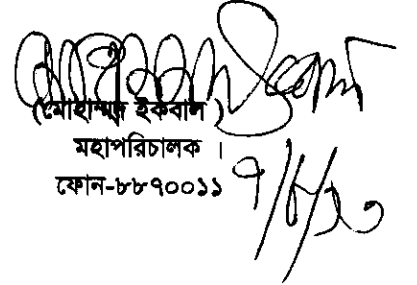 (মোহাম্মদ ইকবাল)
মহাপরিচালক ।
ফোন-৮৮৭০০১১